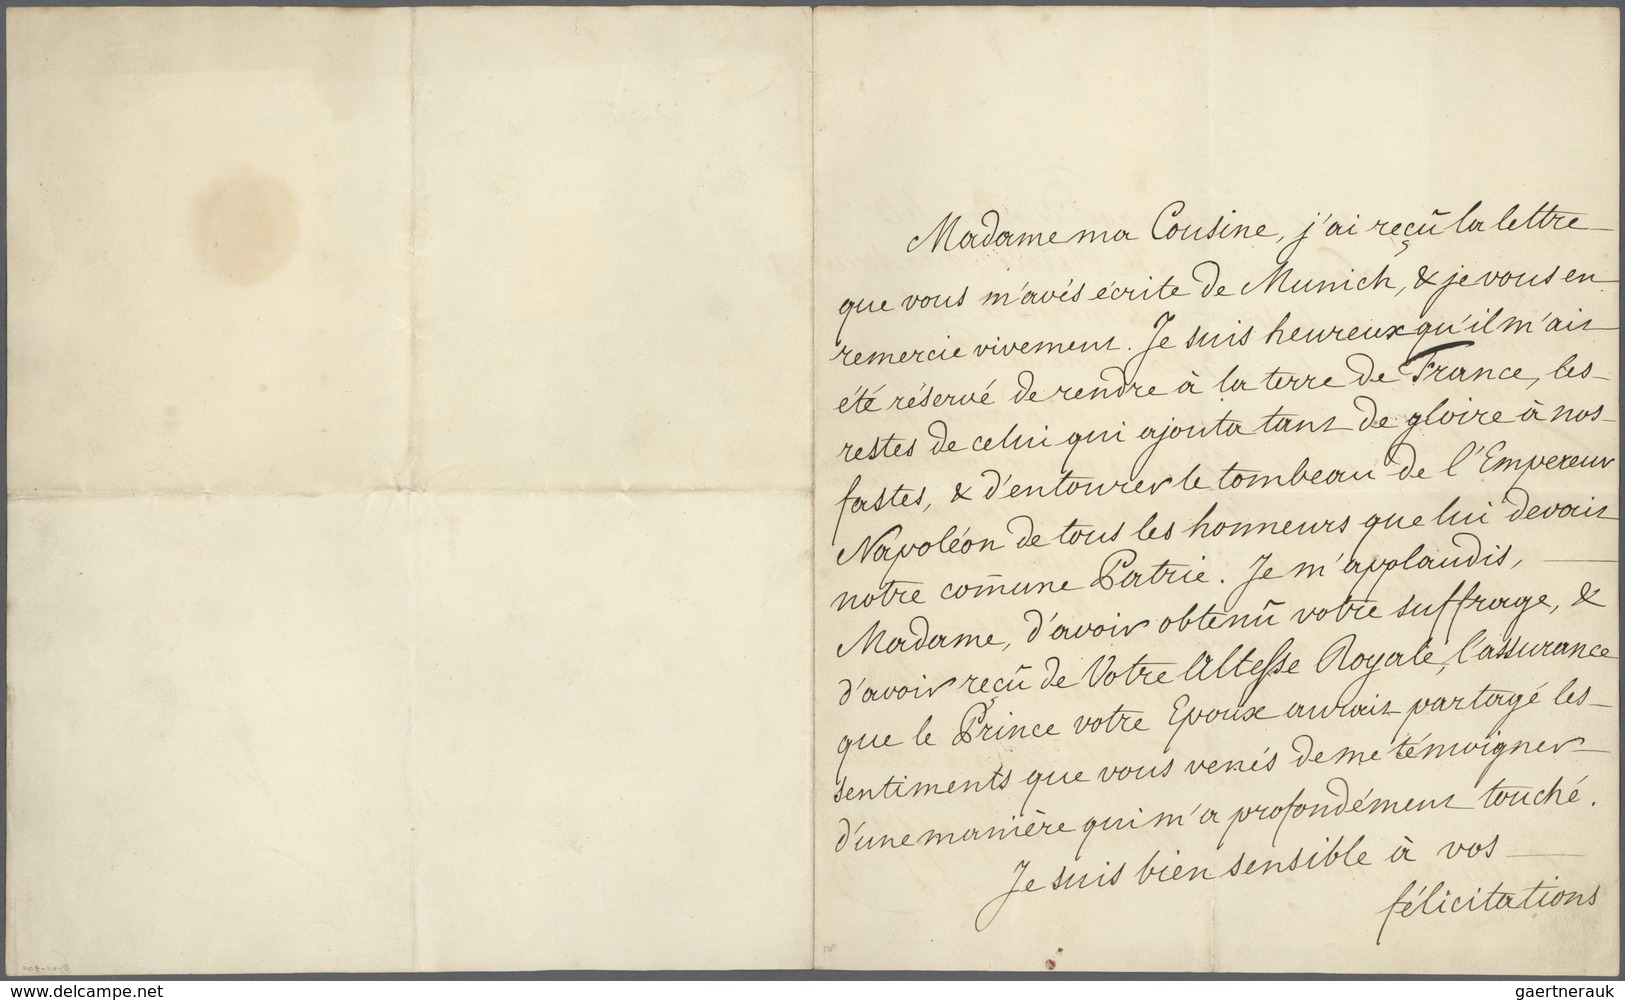 Madame ma Cousine, j'ai reçû la lettre
que vous m'avés écrite de Munich, & je vous en
remercie vivement. Je suis heureux qu'il m'ait
été réservé de rendre à la terre de France, les
restes de celui qui ajouta tant de gloire à nos
fastes, & d'entourer le tombeau de l'Empereur
Napoléon de tous les honneurs que lui devait
notre com̄une Patrie. Je m'applaudis,
Madame, d'avoir obtenû votre suffrage, &
d'avoir reçû de Votre Altesse Royale, l'assurance
que le Prince votre Epoux aurait partagé les
sentiments que vous venés de me témoigner
d'une manière qui m'a profondément touché.
Je suis bien sensible à vos
félicitations
www.delcampe.net
gaertnerauk